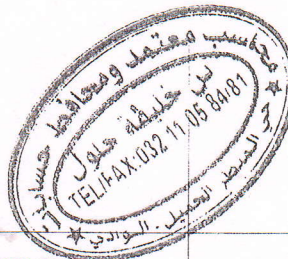 محاسب معتمد ومحافظ حسابات
بن خليفة جلول
TEL/FAX:032 11 05 84/81
حي المنظر الجميل . الوادي